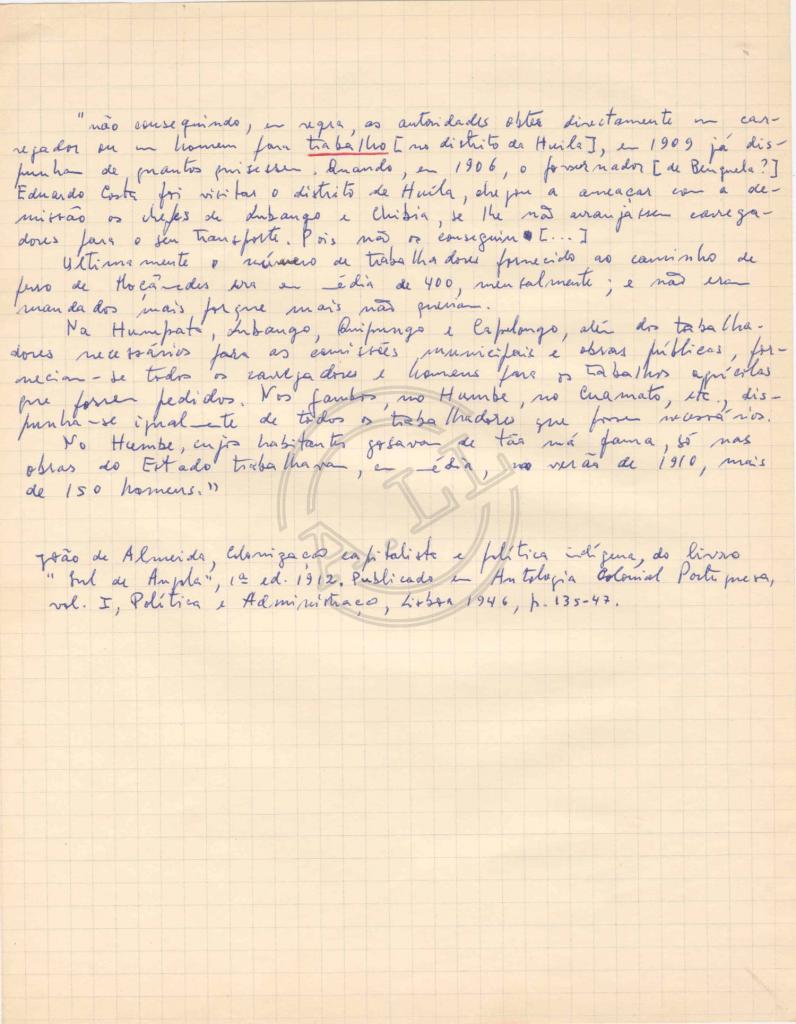 "não conseguindo, em regra, as autoridades obter directamente um car-
regador ou um homem para trabalho [no distrito da Huíla], em 1909 já dis-
punham de quantos quisessem. Quando, em 1906, o governador [de Benguela?]
Eduardo Costa foi visitar o distrito da Huíla, chegou a ameaçar com a de-
missão os chefes de Lubango e Chibia, se lhe não arranjassem carrega-
dores para o seu transporte. Pois não os conseguiu [...]
Ultimamente o número de trabalhadores fornecido ao caminho de
ferro de Moçâmedes era em média de 400, mensalmente; e não eram
mandados mais porque mais não queriam.
Na Humpata, Lubango, Quipungo e Capelongo, além dos trabalha-
dores necessários para as comissões municipais e obras públicas, for-
neciam-se todos os carregadores e homens para os trabalhos agrícolas
que fossem pedidos. Nos Gambos, no Humbe, no Cuamato, etc., dis-
punha-se igualmente de todos os trabalhadores que fossem necessários.
No Humbe, cujos habitantes gosavam de tão má fama, só nas
obras do Estado trabalhavam, em média, no verão de 1910, mais
de 150 homens."
João de Almeida, Colonização capitalista e política indígena, do livro
"Sul de Angola", 1ª ed. 1912. Publicado em Antologia Colonial Portuguesa,
vol. I, Política e Administração, Lisboa 1946, p. 135-47.
A. LL